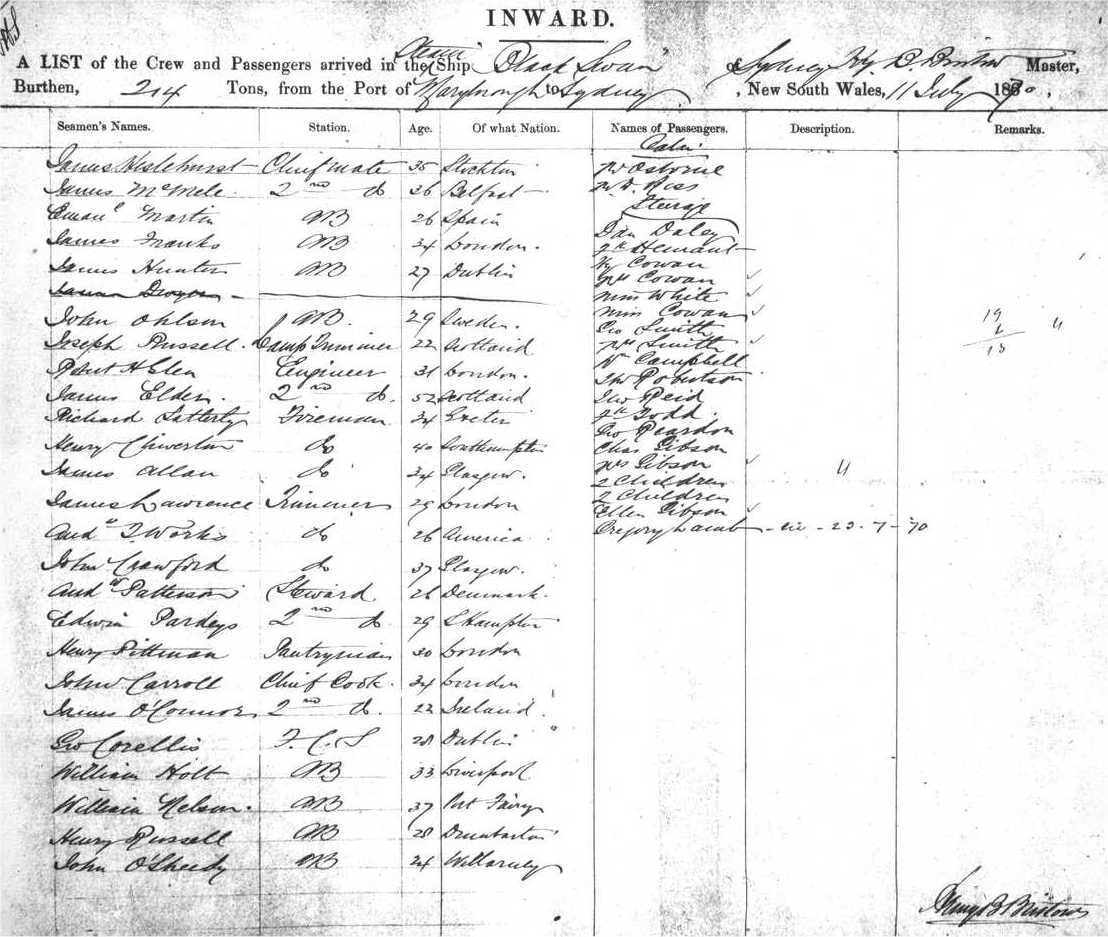 INWARD.
A LIST of the Crew and Passengers arrived in the Steam Ship Black Swan of Sydney Hy B. Bristow Master,
Burthen, 214 Tons, from the Port of Maryborough to Sydney, New South Wales, 11 July 1870.
Seamen's Names. Station. Age. Of what Nation. Names of Passengers. Description. Remarks.
Cabin
James Hislehurst Chief mate 35 Stockton Mr Osborne
James McMele 2nd do 26 Belfast Mr D. Ross
Steerage
Eman'l Martin AB 26 Spain Dan Daley
James Franks AB 34 London. Hemant
James Hunter AB 27 Dublin Hy Cowan
Mrs Cowan
Miss White
Miss Cowan
John Ohlson AB. 29 Sweden. Geo Smith 19
Joseph Russell. Lamp Trimmer 22 Scotland Mrs Smith 4
Wm Campbell 18
Engineer 31 London. Robertson
James Elder. 2nd do. 52 Scotland Reid
Richard Latterty Fireman 34 Exeter Todd
Geo Reardon
Henry Chiverton do 40 Southampton Chas Gibson
James Allan do 34 Glasgow. Mrs Gibson 4
2 Children
2 Children
James Lawrence Trimmer 29 London Ellen Gibson
Andw T Works do 26 America Gregory Lamb - 23-7-70
John Crawford do 37 Glasgow.
Andw Patterson Steward 26 Denmark.
Edwin Pardeys 2nd do 29 SHampton
Henry Pittman Pantryman 30 London
John Carroll Chief Cook. 34 London
James O'Connor 2nd do. 22 Ireland
Geo Corellis F.C.S 28 Dublin
William Holt AB 33 Liverpool
William Nelson. AB 37 Port Fairy
Henry Russell AB 28 Dumbarton
John O'Sheedy AB 24
Henry B Bristow